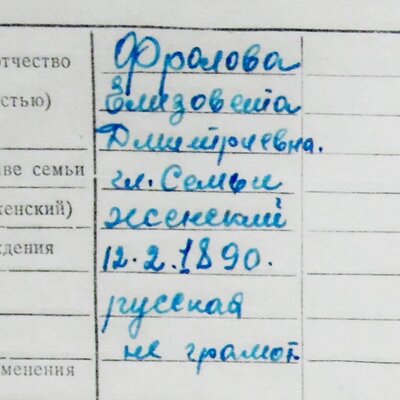 отчество Фролова
остью) Елизовета
Дмитриевна.
ве семьи гл. Семьи
женский) женский
ждения 12.2.1890.
русская
не грамот.
менения